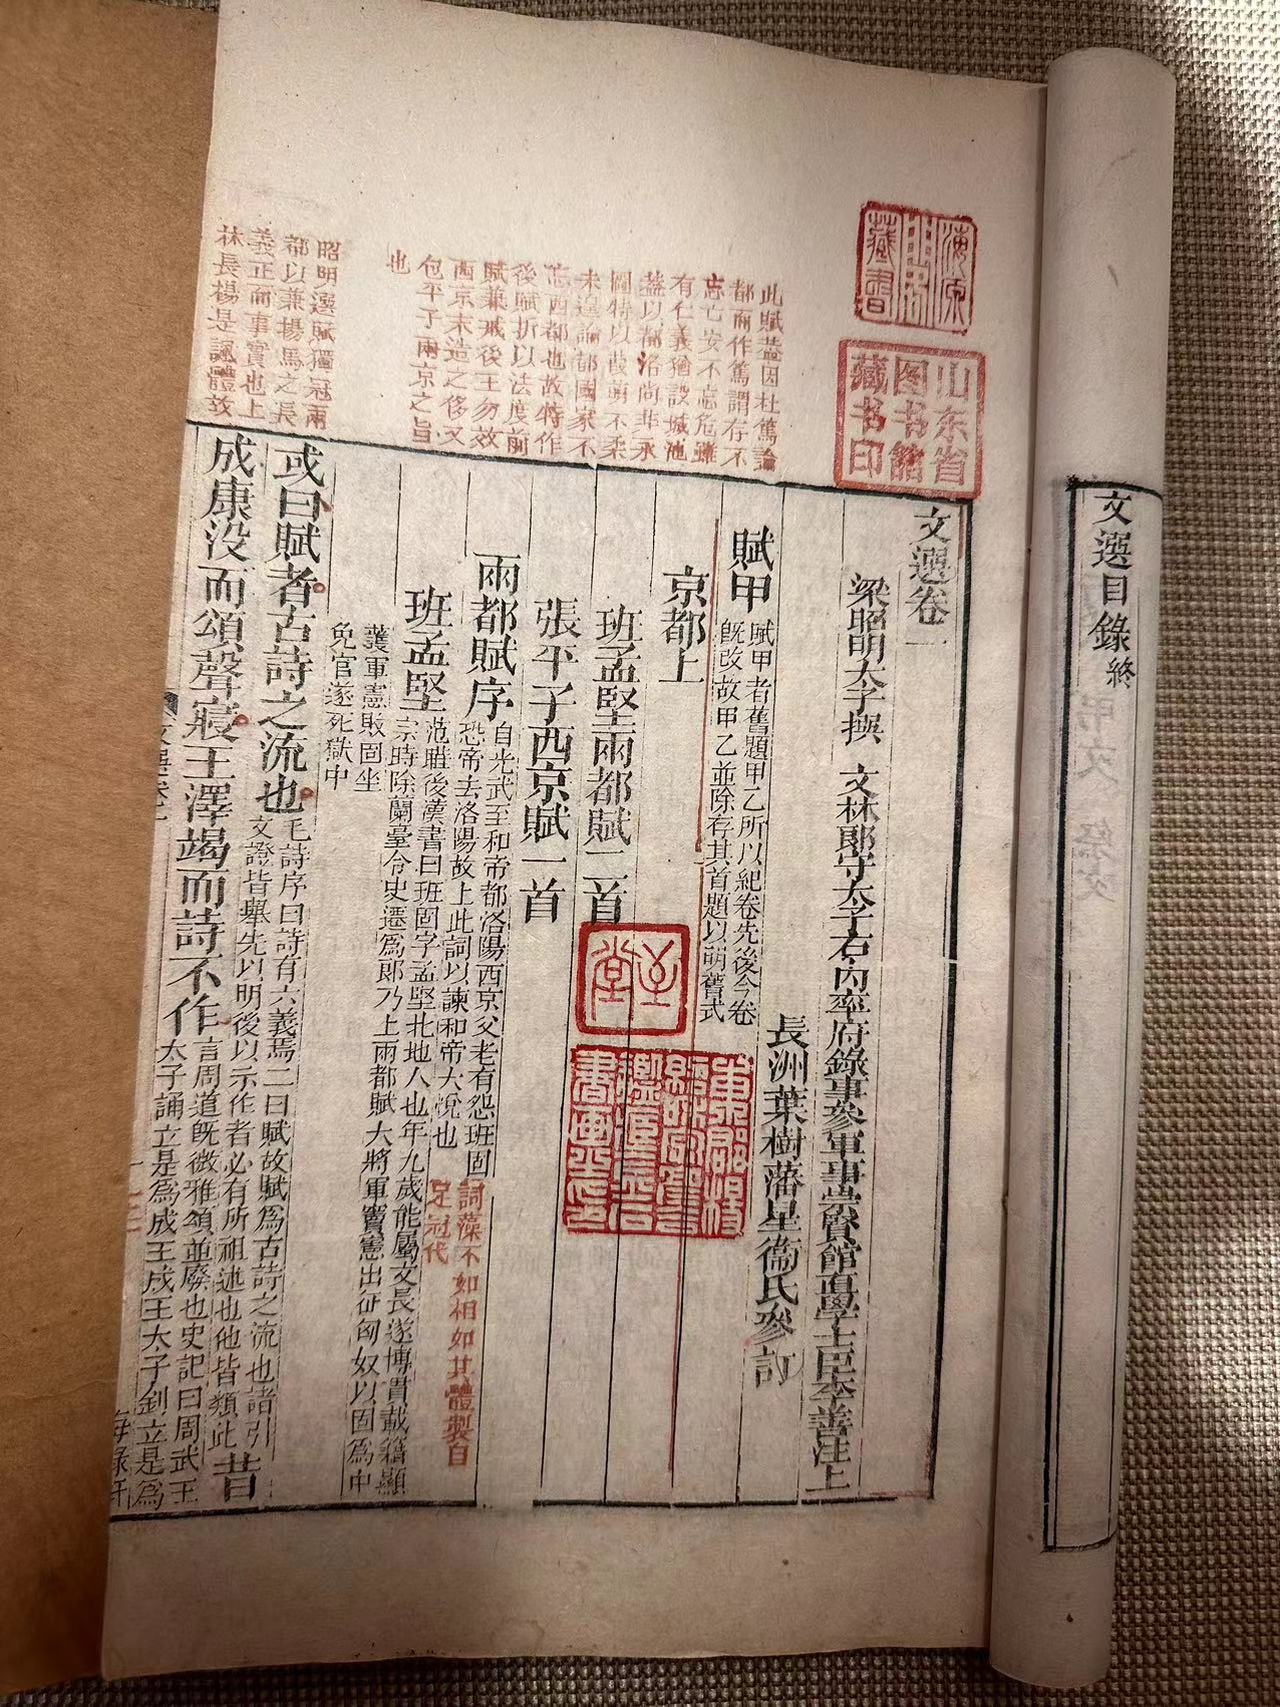 文選目錄終
山东省
图书馆
藏书印
藏書
文選卷一
梁昭明太子撰 文林郎守太子右內率府錄事參軍事崇賢館直學士臣李善注上
長洲葉樹藩星衞氏參訂
賦甲
賦甲者舊題甲乙所以紀卷先後今卷
旣改故甲乙並除存其首題以明舊式
京都上
班孟堅兩都賦二首
張平子西京賦一首
兩都賦序
自光武至和帝都洛陽西京父老有怨班固
恐帝去洛陽故上此詞以諫和帝大悅也
詞藻不如相如其體製自
足冠代
班孟堅
范曄後漢書曰班固字孟堅北地人也年九歲能屬文長遂博貫載籍顯
宗時除蘭臺令史遷為郎乃上兩都賦大將軍竇憲出征匈奴以固為中
護軍憲敗固坐
免官遂死獄中
或曰賦者古詩之流也
毛詩序曰詩有六義焉二曰賦故賦為古詩之流也諸引
文證皆舉先以明後以示作者必有所祖述也他皆類此
昔
成康沒而頌聲寢王澤竭而詩不作
言周道旣微雅頌並廢也史記曰周武王
太子誦立是為成王成王太子釗立是為
海錄軒
此賦蓋因杜篤論
都而作篤謂存不
忘亡安不忘危雖
有仁義猶設城池
蓋以都洛尚非永
圖特以葭萌不柔
未遑論都國家不
忘西都也故特作
後賦折以法度前
賦兼戒後王勿效
西京末造之侈又
包平子兩京之旨
也
昭明選賦獨冠兩
都以兼揚馬之長
義正而事實也上
林長楊是諷體故